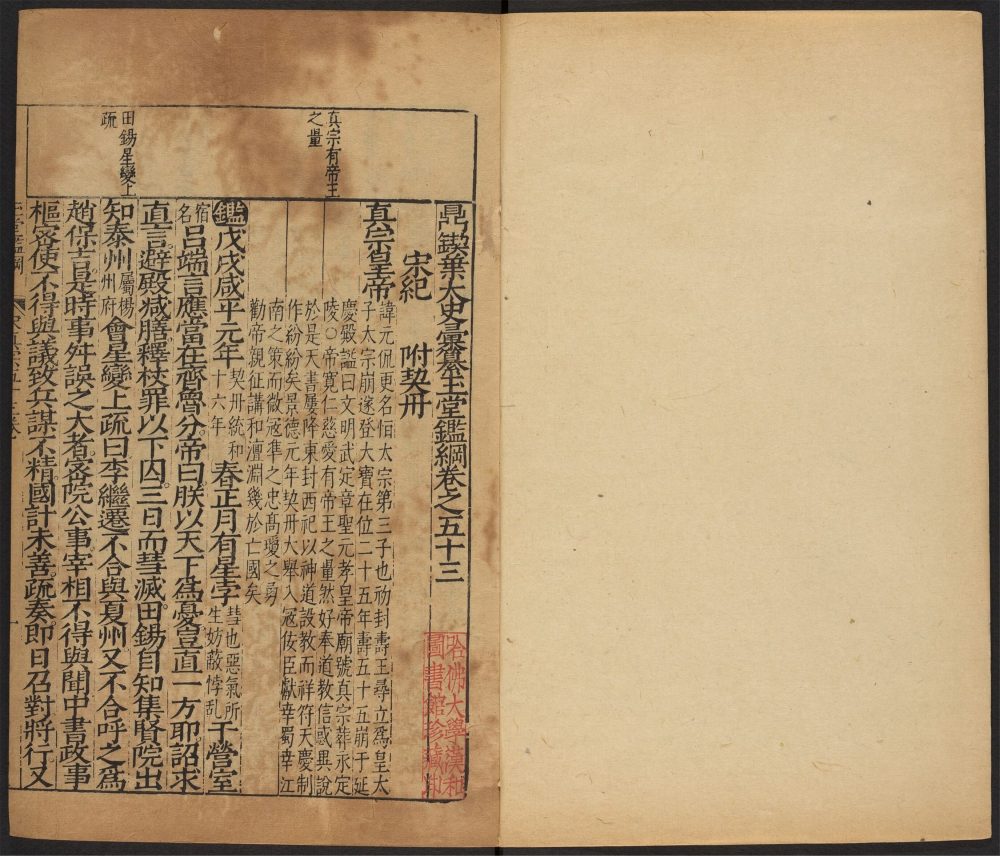 真宗有帝王
之量
田錫星變上
疏
鼎鍥葉太史彙纂玉堂鑑綱卷之五十三
宋紀 附契丹
真宗皇帝
諱元侃更名恒太宗第三子也初封壽王尋立爲皇太
子太宗崩遂登大寶在位二十五年壽五十五崩于延
慶殿謚曰文明武定章聖元孝皇帝廟號真宗葬永定
陵○帝寬仁慈愛有帝王之量然好奉道教信惑異說
於是天書屢降東封西祀以神道設教而祥符天慶制
作紛紛矣景德元年契丹大舉入冦佞臣獻幸蜀幸江
南之策而微冦準之忠髙瓊之勇
勸帝親征講和澶淵幾於亡國矣
鑑戊戌咸平元年
契丹統和
十六年
春正月有星孛
彗也惡氣所
生妨蔽悖乱
于營室
宿
名
吕端言應當在齊魯分帝曰朕以天下爲憂豈直一方耶詔求
直言避殿减膳釋杖罪以下囚三日而彗滅田錫自知集賢院出
知泰州
屬楊
州府
會星變上疏曰李繼遷不合與夏州又不合呼之爲
趙保吉是時事舛誤之大者宻院公事宰相不得與聞中書政事
樞宻使不得與議致兵謀不精國計未善疏奏即日召對將行又
哈佛大學漢和
圖書館珍藏印